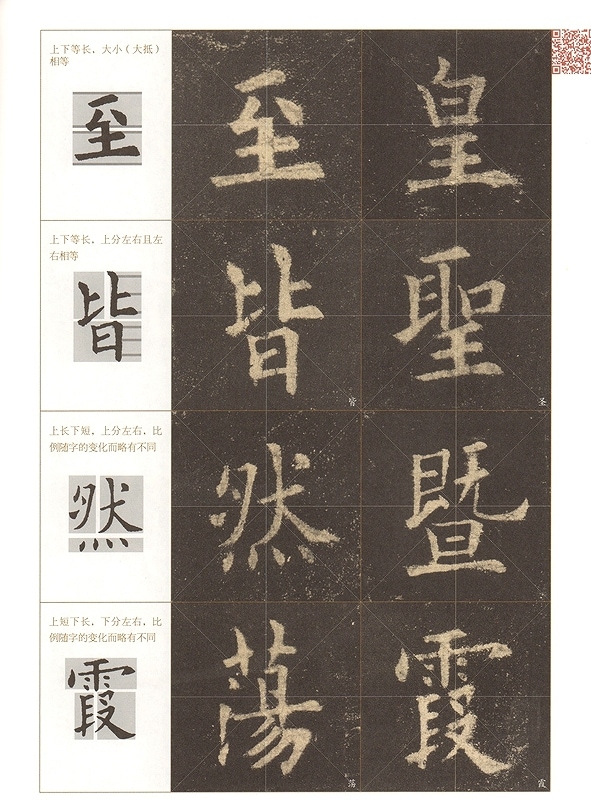 上下等长，大小（大抵）
相等
至
至 皇
上下等长，上分左右且左
右相等
皆
皆 聖
皆 圣
上长下短，上分左右，比
例随字的变化而略有不同
然
然 暨
上短下长，下分左右，比
例随字的变化而略有不同
霞
蕩 霞
荡 霞